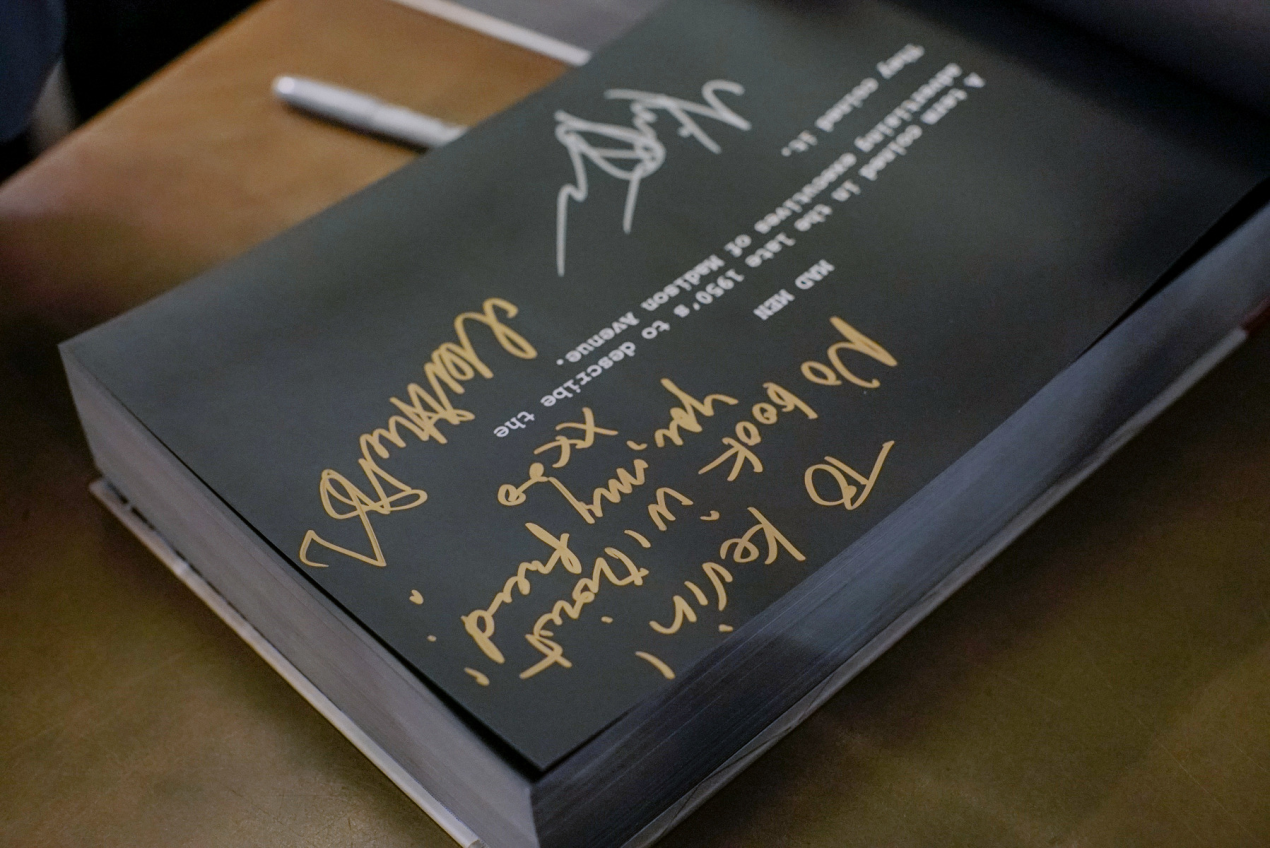 MAD MEN
A term coined in the late 1950's to describe the
advertising executives of Madison Avenue.
They coined it.
To Kevin!
No book without
you, my friend!
xxoo